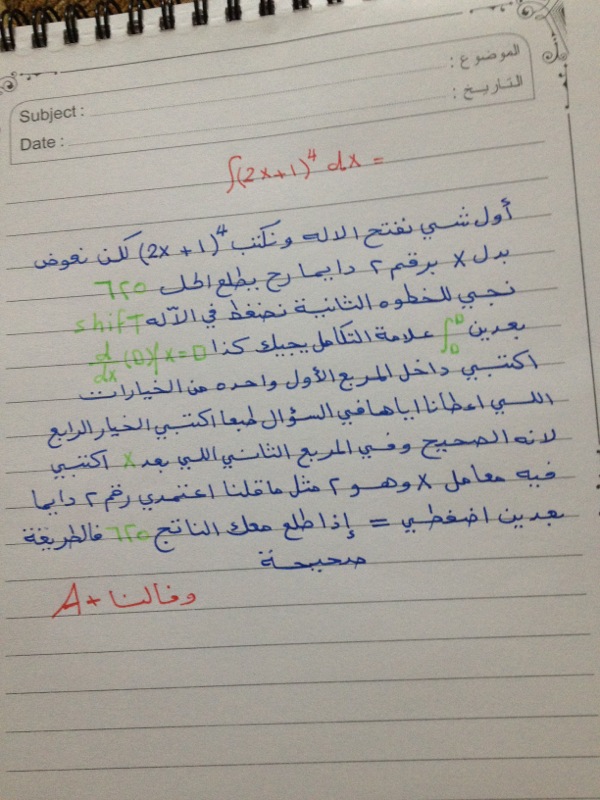 الموضوع :
Subject :
التاريخ :
Date :
∫(2x+1)⁴ dx =
أول شي نفتح الاله ونكتب (2x+1)⁴ لكن نعوض
بدل x برقم ٢ دايما رح يطلع الحل ٦٢٥
نجي للخطوه الثانية نضغط في الآله shift
بعدين ∫ علامة التكامل يجيك كذا d/dx (□)|x=□
اكتبي داخل المربع الأول واحده من الخيارات
اللي اعطانا اياها في السؤال طبعا اكتبي الخيار الرابع
لانه الصحيح وفي المربع الثاني اللي بعد x اكتبي
فيه معامل x وهو ٢ مثل ماقلنا اعتمدي رقم ٢ دايما
بعدين اضغطي = إذا طلع معك الناتج ٦٢٥ فالطريقة
صحيحة
وفالنا A+